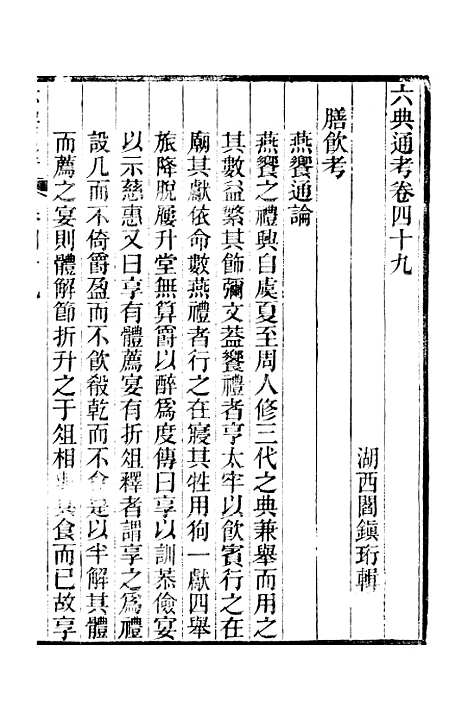 六典通考卷四十九
湖西閻鎮珩輯
膳飲考
燕饗通論
燕饗之禮興自虞夏至周人修三代之典兼舉而用之
其數益繁其飾彌文葢饗禮者亨太牢以飲賓行之在
廟其獻依命數燕禮者行之在寢其牲用狗一獻四舉
旅降脫屨升堂無算爵以醉爲度傳曰享以訓恭儉宴
以示慈惠又曰享有體薦宴有折俎釋者謂享之爲禮
設几而不倚爵盈而不飮殽乾而不食是以半解其體
而薦之宴則體解節折升之于俎相與共食而已故享